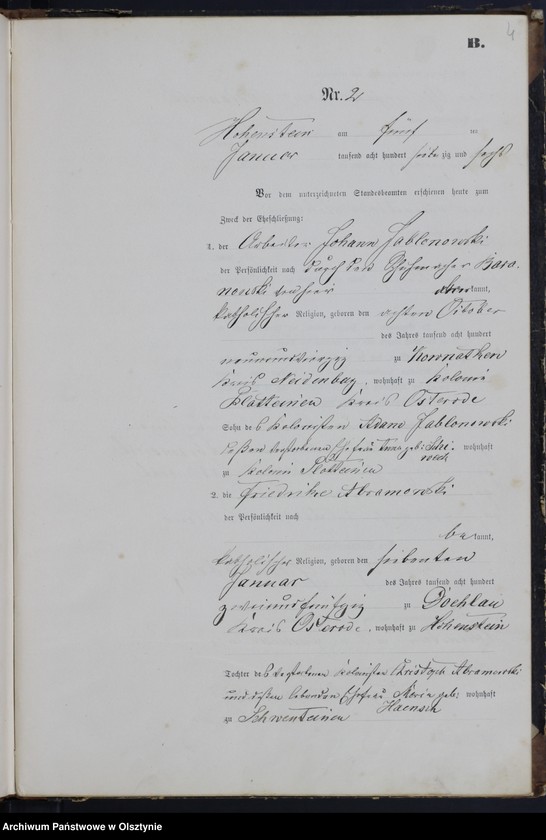 4
B.
Nr. 2
Hohenstein am fünf ten
Januar tausend acht hundert siebenzig und sechs
Vor dem unterzeichneten Standesbeamten erschienen heute zum
Zweck der Eheschließung:
1. der Arbeiter Johann Jablonowski
der Persönlichkeit nach durch den Schuhmacher Bara-
nowski von hier erkannt,
katholischer Religion, geboren den achten Oktober
des Jahres tausend acht hundert
neunundvierzig zu Kownatken
Kreis Neidenburg, wohnhaft zu Kolonie
Platteinen Kreis Osterode
Sohn des Kolonisten Adam Jablonowski
dessen verstorbenen Ehefrau geb:
wohnhaft
zu Kolonie Platteinen
2. die Friedrike Abramowski
der Persönlichkeit nach
bekannt,
katholischer Religion, geboren den siebenten
Januar des Jahres tausend acht hundert
zweiundfünfzig zu Doehlau
Kreis Osterode, wohnhaft zu Hohenstein
Tochter des verstorbenen Kolonisten Christoph Abramowski
und dessen lebenden Ehefrau Maria geb: wohnhaft
Haensch
zu Schwenteinen
Archiwum Państwowe w Olsztynie